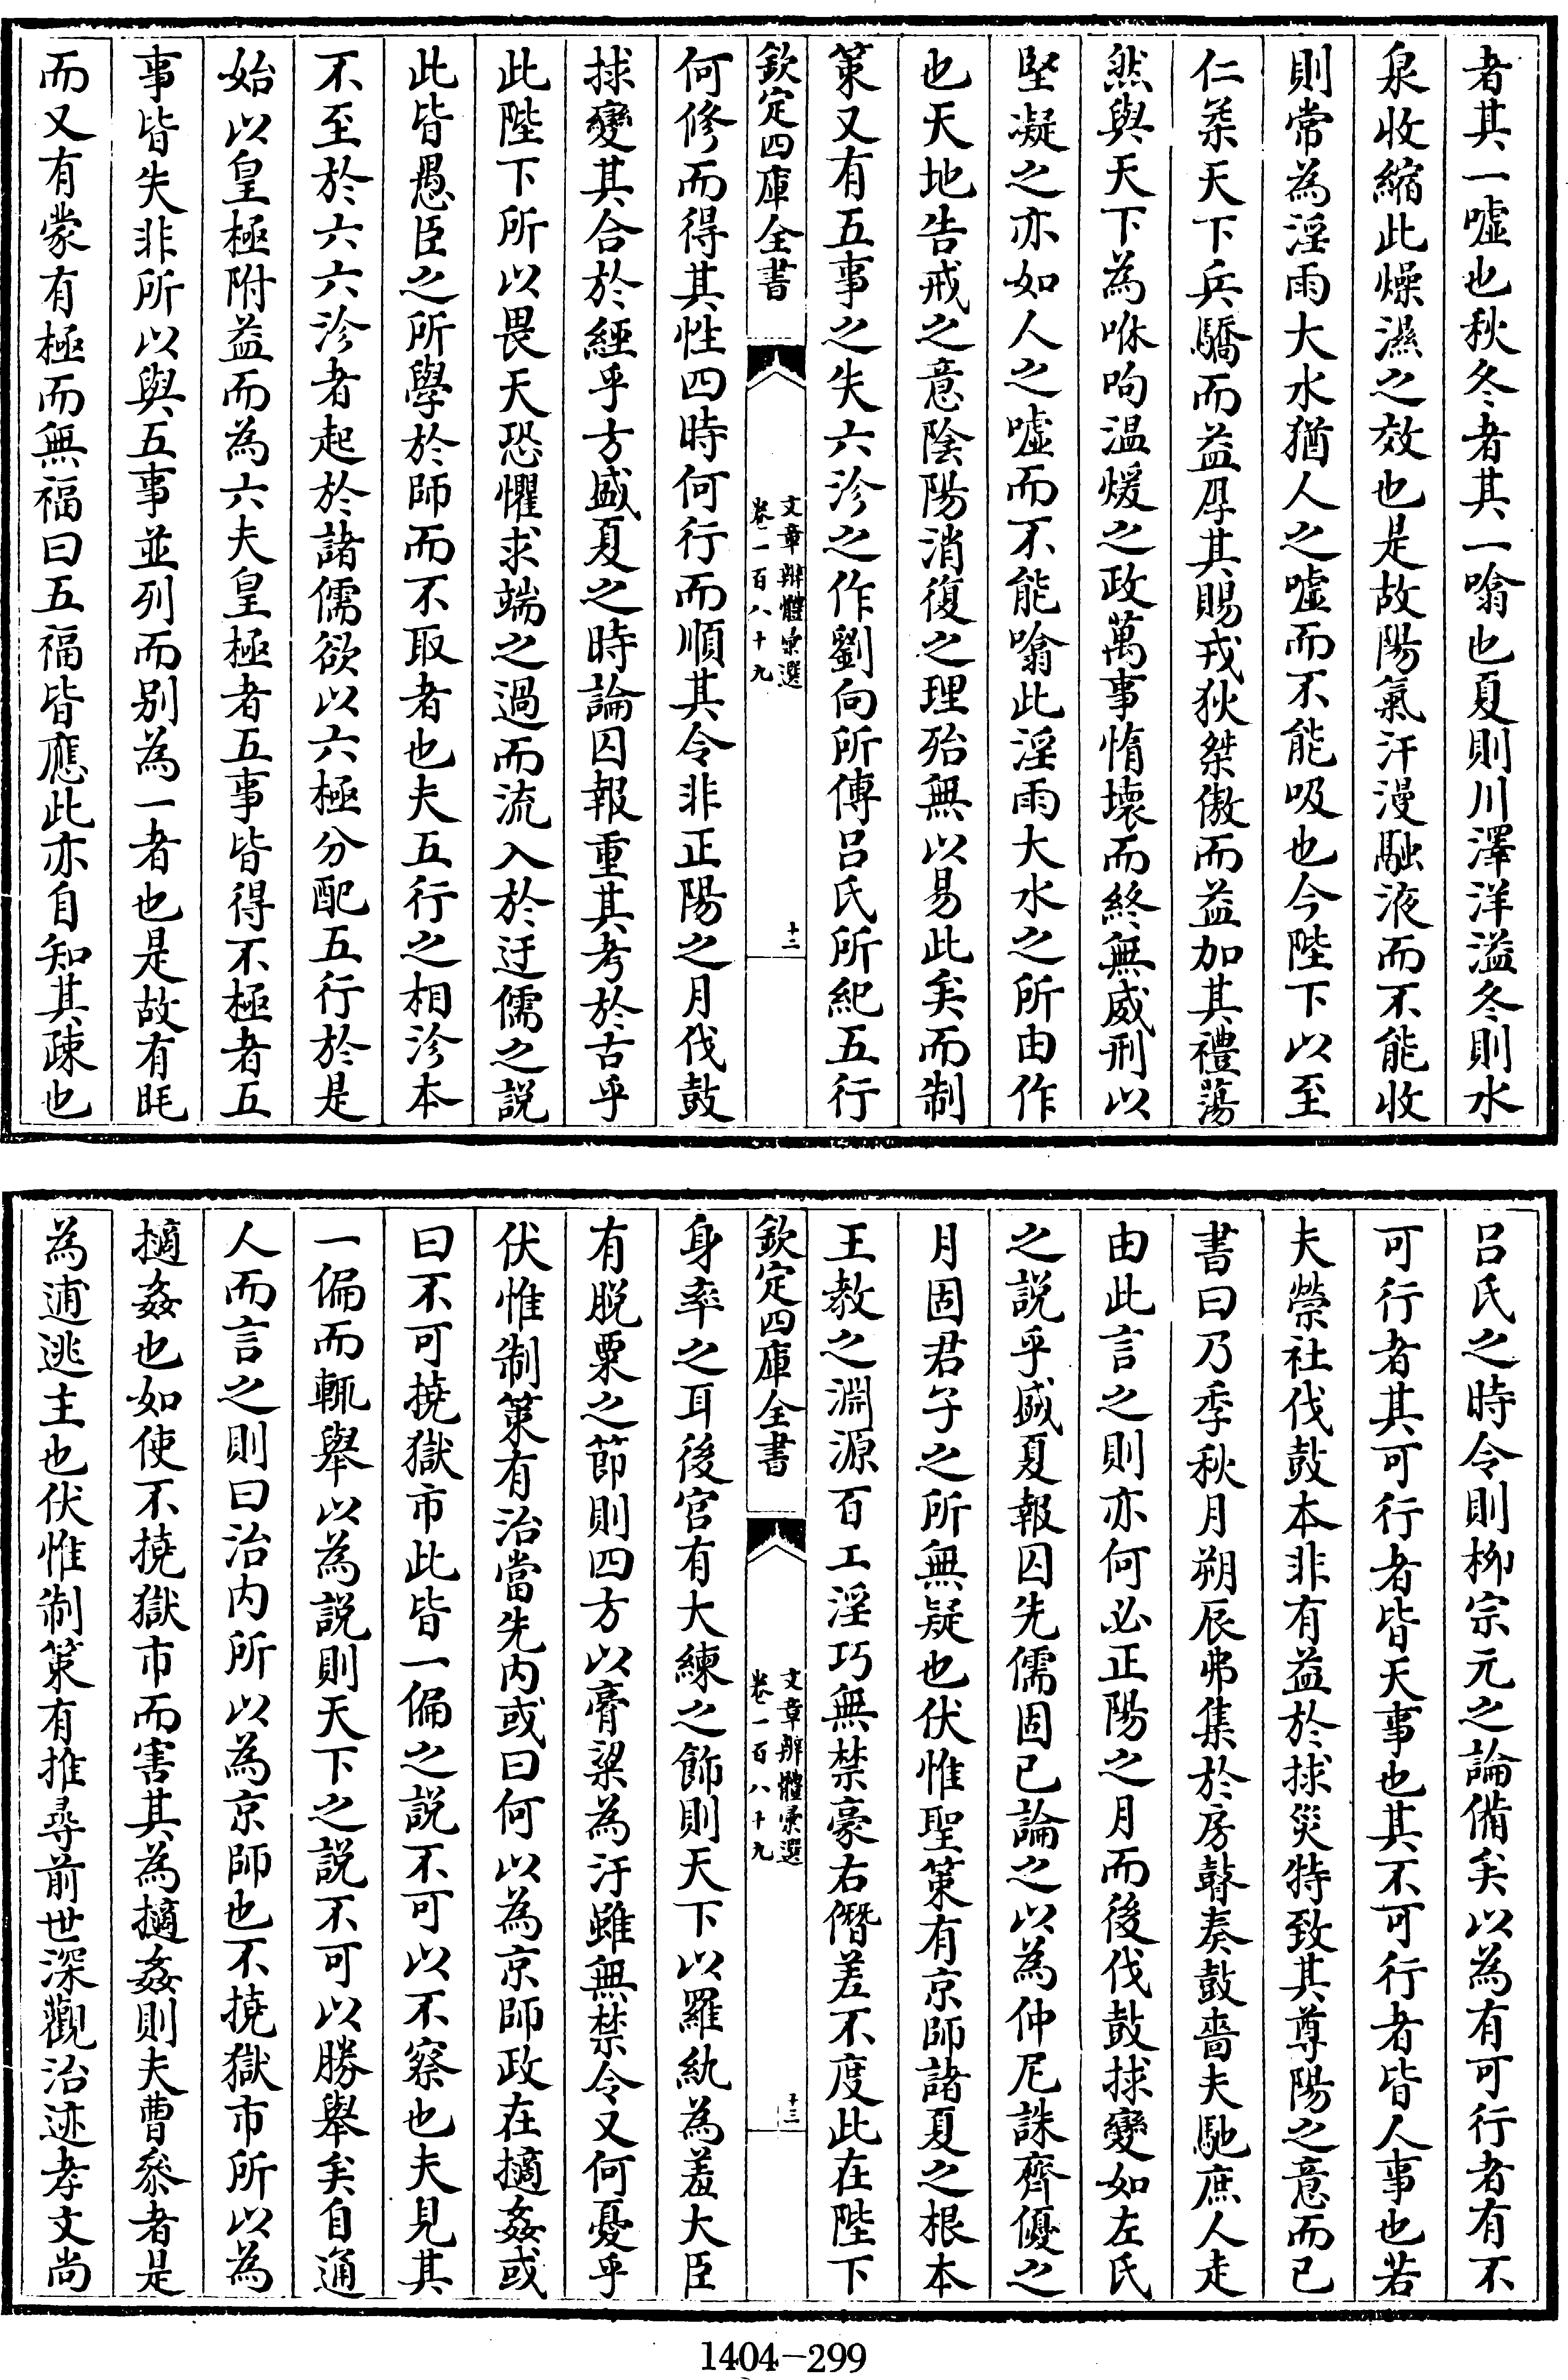 者其一噓也秋冬者其一噏也夏則川澤洋溢冬則水
泉收縮此燥濕之效也是故陽氣汗漫融液而不能收
則常為淫雨大水猶人之噓而不能吸也今陛下以至
仁柔天下兵驕而益厚其賜戎狄桀傲而益加其禮蕩
然與天下為咻呴温煖之政萬事惰壊而終無威刑以
堅凝之亦如人之噓而不能噏此淫雨大水之所由作
也天地告戒之意陰陽消復之理殆無以易此矣而制
策又有五事之失六沴之作劉向所傳吕氏所紀五行
欽定四庫全書
文章辨體彙選
卷一百八十九
十二
何修而得其性四時何行而順其令非正陽之月伐鼓
捄變其合於經乎方盛夏之時論囚報重其考於古乎
此陛下所以畏天恐懼求端之過而流入於迂儒之説
此皆愚臣之所學於師而不取者也夫五行之相沴本
不至於六六沴者起於諸儒欲以六極分配五行於是
始以皇極附益而為六夫皇極者五事皆得不極者五
事皆失非所以與五事並列而别為一者也是故有眊
而又有蒙有極而無福曰五福皆應此亦自知其疎也
吕氏之時令則栁宗元之論備矣以為有可行者有不
可行者其可行者皆天事也其不可行者皆人事也若
夫禜社伐鼓本非有益於捄災特致其尊陽之意而已
書曰乃季秋月朔辰弗集於房瞽奏鼓嗇夫馳庶人走
由此言之則亦何必正陽之月而後伐鼓捄變如左氏
之説乎盛夏報囚先儒固已論之以為仲尼誅齊優之
月固君子之所無疑也伏惟聖策有京師諸夏之根本
王教之淵源百工淫巧無禁豪右僭差不度此在陛下
欽定四庫全書
文章辨體彙選
卷一百八十九
十三
身率之耳後宫有大練之飾則天下以羅紈為羞大臣
有脱粟之節則四方以膏粱為汙雖無禁令又何憂乎
伏惟制策有治當先内或曰何以為京師政在擿姦或
曰不可撓獄市此皆一偏之説不可以不察也夫見其
一偏而輒舉以為説則天下之説不可以勝舉矣自通
人而言之則曰治内所以為京師也不撓獄市所以為
擿姦也如使不撓獄市而害其為擿姦則夫曹叅者是
為逋逃主也伏惟制策有推尋前世深觀治迹孝文尚
1404-299